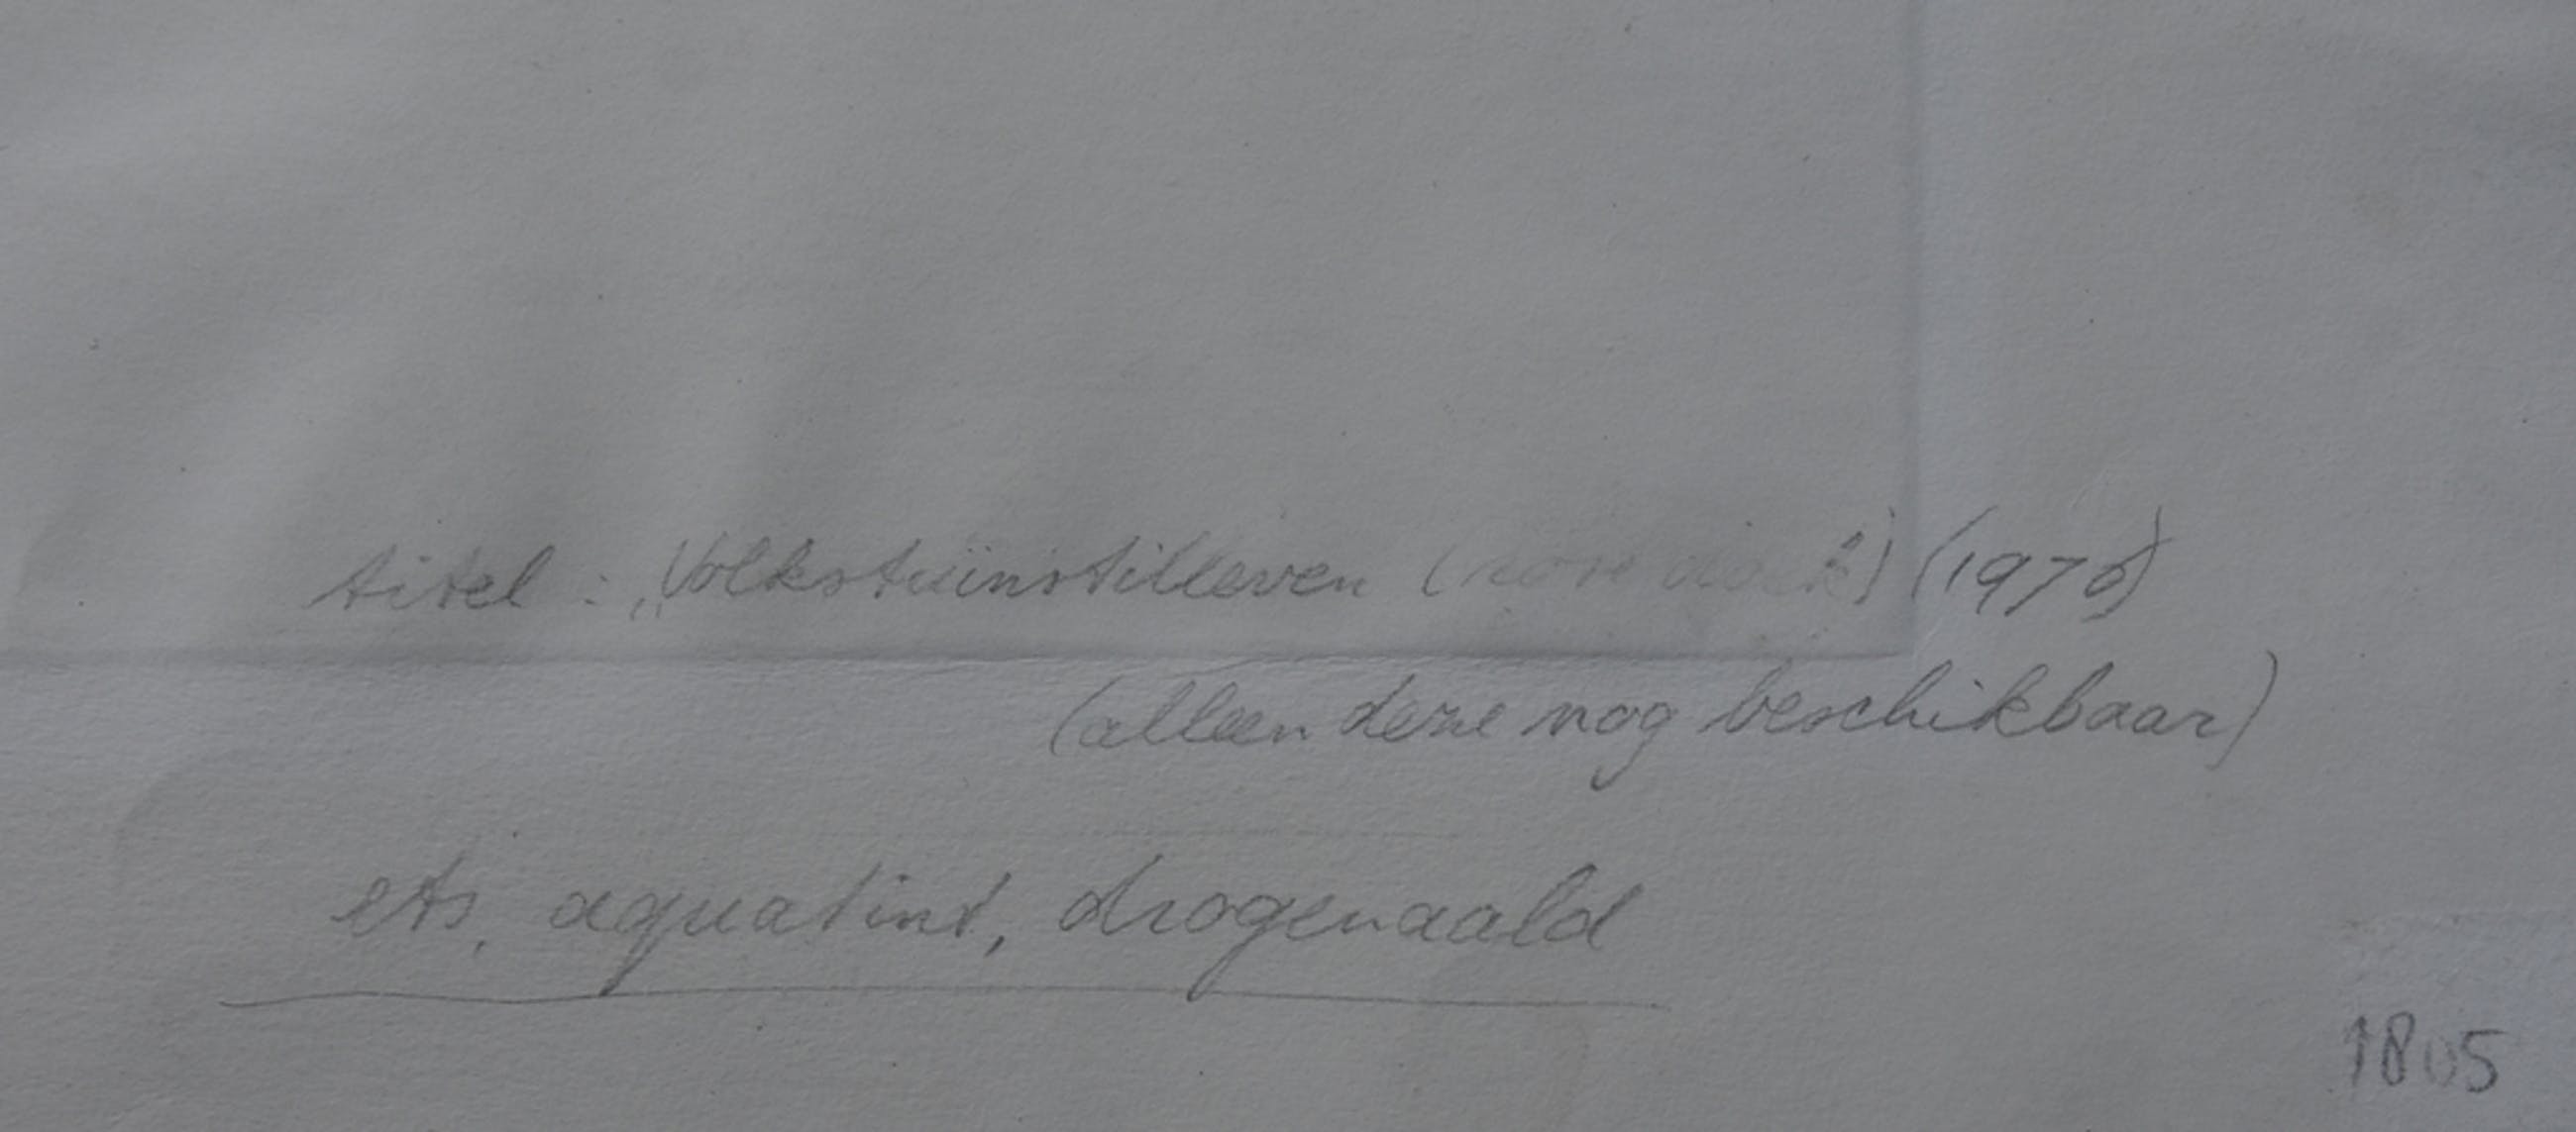 titel : „Volkstuinstilleven (1976)
(alleen deze nog beschikbaar)
ets, aquatint, drogenaald
1805